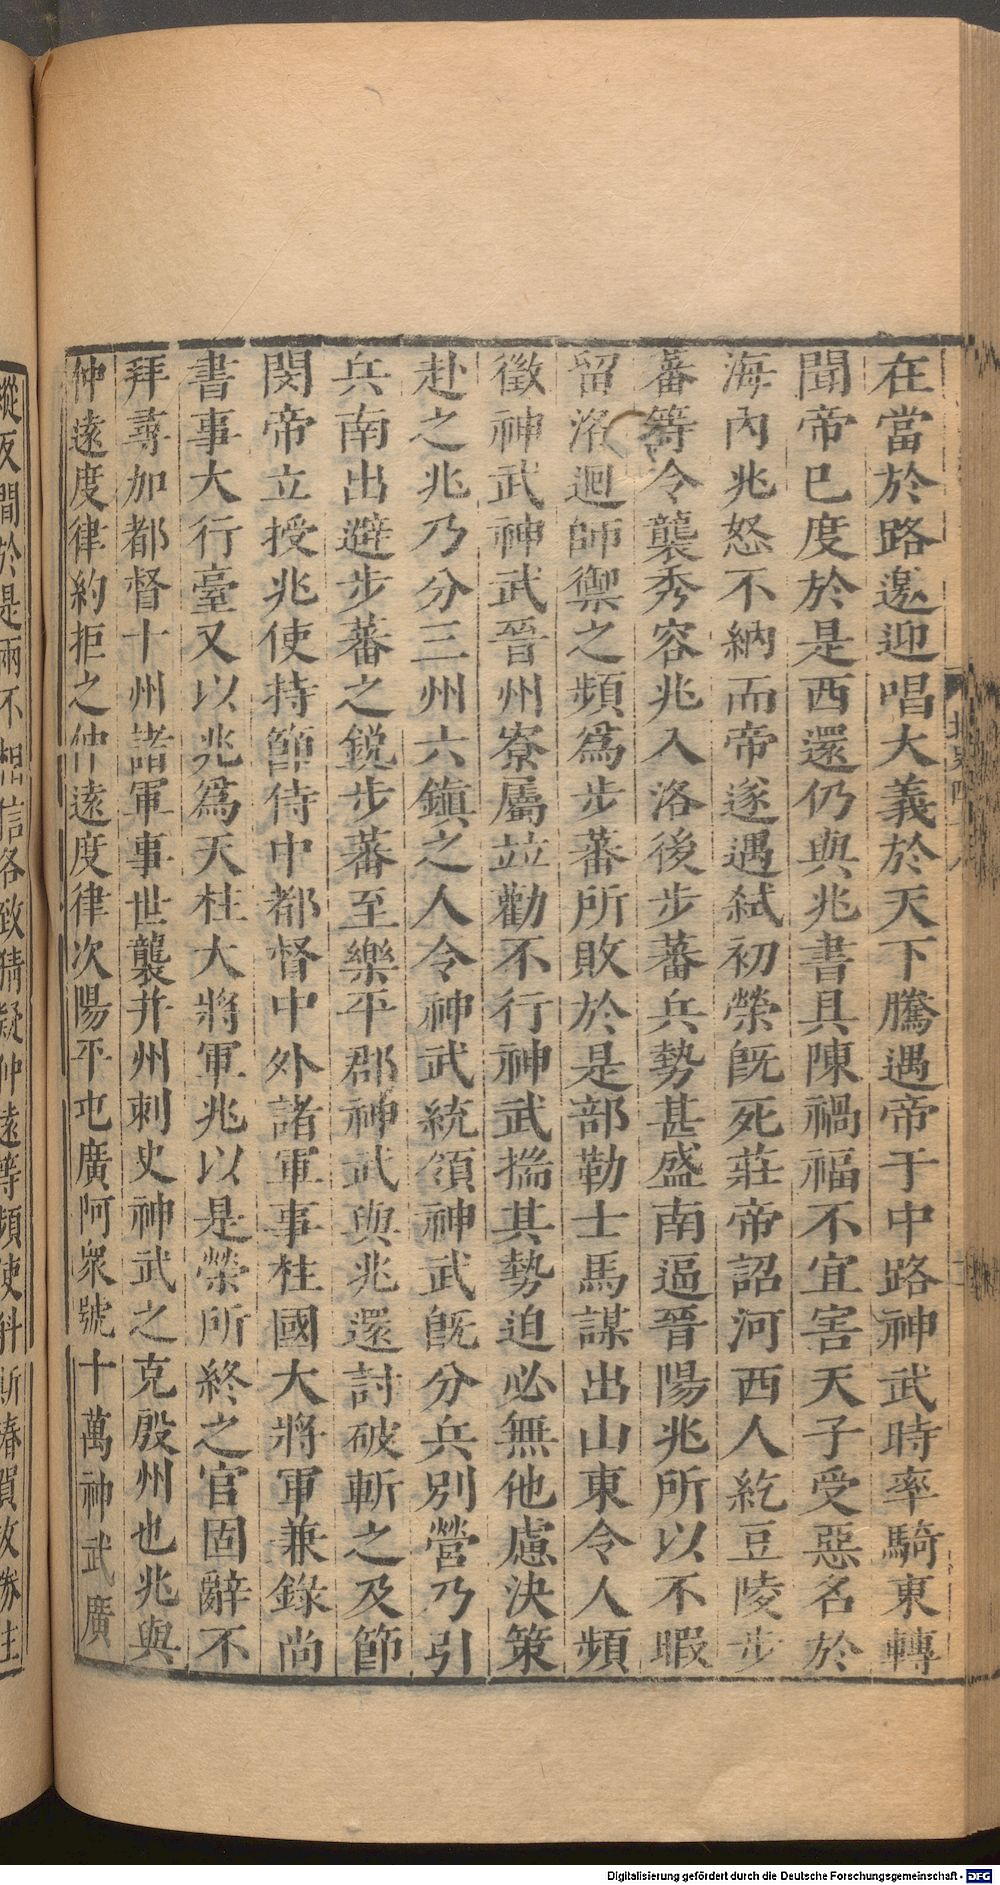 在當於路邀迎唱大義於天下騰遇帝于中路神武時率騎東轉
聞帝已度於是西還仍與兆書具陳禍福不宜害天子受惡名於
海內兆怒不納而帝遂遇弒初榮既死莊帝詔河西人紇豆陵步
蕃等令襲秀容兆入洛後步蕃兵勢甚盛南逼晉陽兆所以不暇
留洛迴師禦之頻爲步蕃所敗於是部勒士馬謀出山東令人頻
徵神武神武晉州寮屬竝勸不行神武揣其勢迫必無他慮決策
赴之兆乃分三州六鎭之人令神武統領神武既分兵別營乃引
兵南出避步蕃之銳步蕃至樂平郡神武與兆還討破斬之及節
閔帝立授兆使持節侍中都督中外諸軍事柱國大將軍兼錄尚
書事大行臺又以兆爲天柱大將軍兆以是榮所終之官固辭不
拜尋加都督十州諸軍事世襲并州刺史神武之克殷州也兆與
仲遠度律約拒之仲遠度律次陽平屯廣阿衆號十萬神武廣
縱反間於是兩不相信各致猜疑仲遠等頻使斛斯椿賀拔勝往
Digitalisierung gefördert durch die Deutsche Forschungsgemeinschaft - DFG